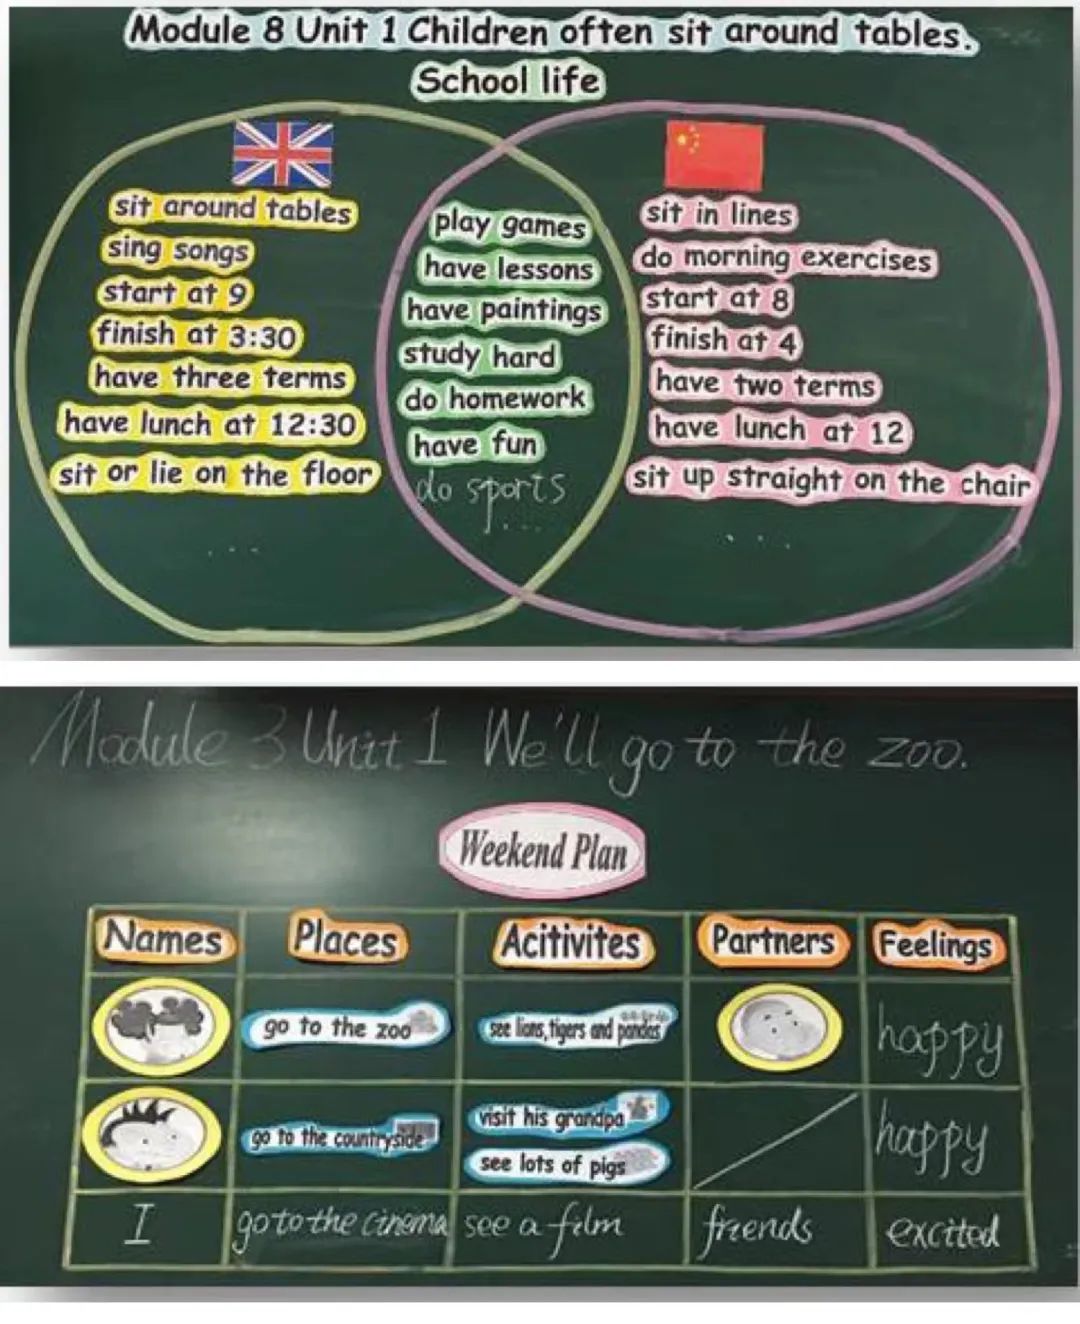 Module 8 Unit 1 Children often sit around tables.
School life
sit around tables
sing songs
start at 9
finish at 3:30
have three terms
have lunch at 12:30
sit or lie on the floor
...
play games
have lessons
have paintings
study hard
do homework
have fun
do sports
...
sit in lines
do morning exercises
start at 8
finish at 4
have two terms
have lunch at 12
sit up straight on the chair
...
Module 3 Unit 1 We'll go to the zoo.
Weekend Plan
Names Places Acitivites Partners Feelings
go to the zoo see lions, tigers and pandas happy
go to the countryside visit his grandpa happy
see lots of pigs
I go to the cinema see a film friends excited